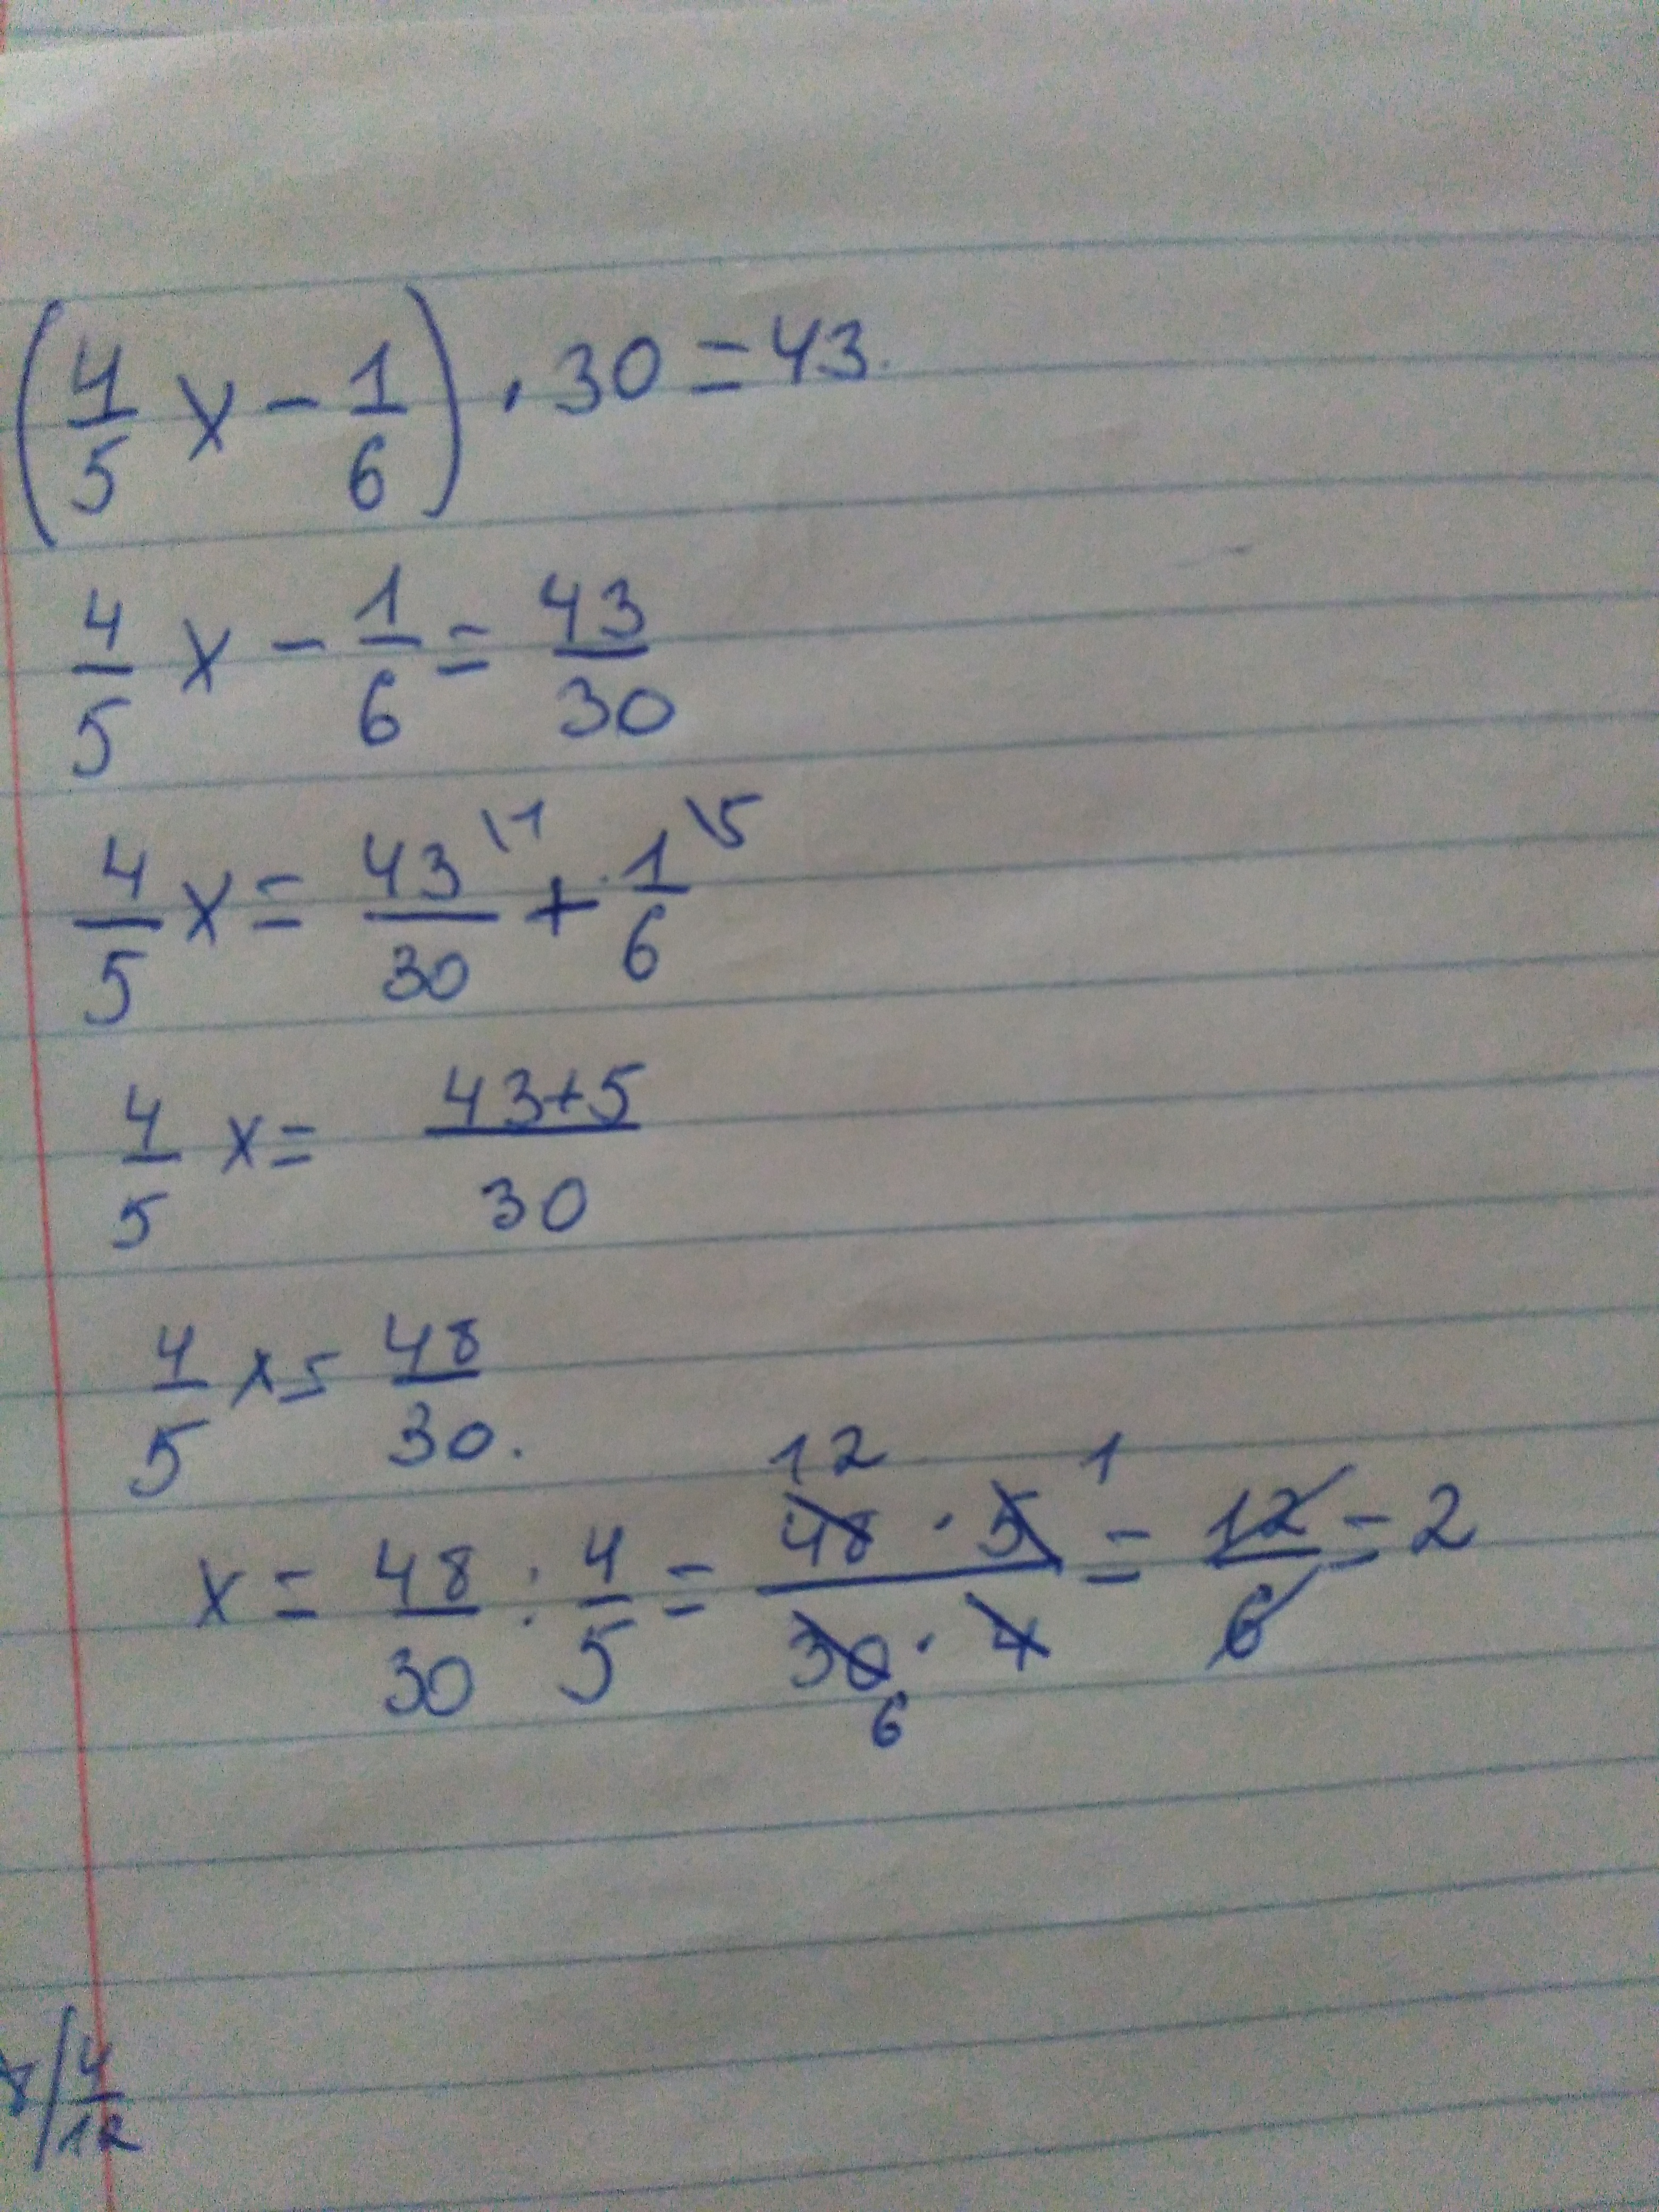 (4/5 x - 1/6) · 30 = 43.
4/5 x - 1/6 = 43/30
4/5 x = 43\1/30 + 1\5/6
4/5 x = 43+5/30
4/5 x = 48/30.
12 1
x = 48/30 : 4/5 = 48 · 5/30 · 4 = 12/6 = 2
6
4/12